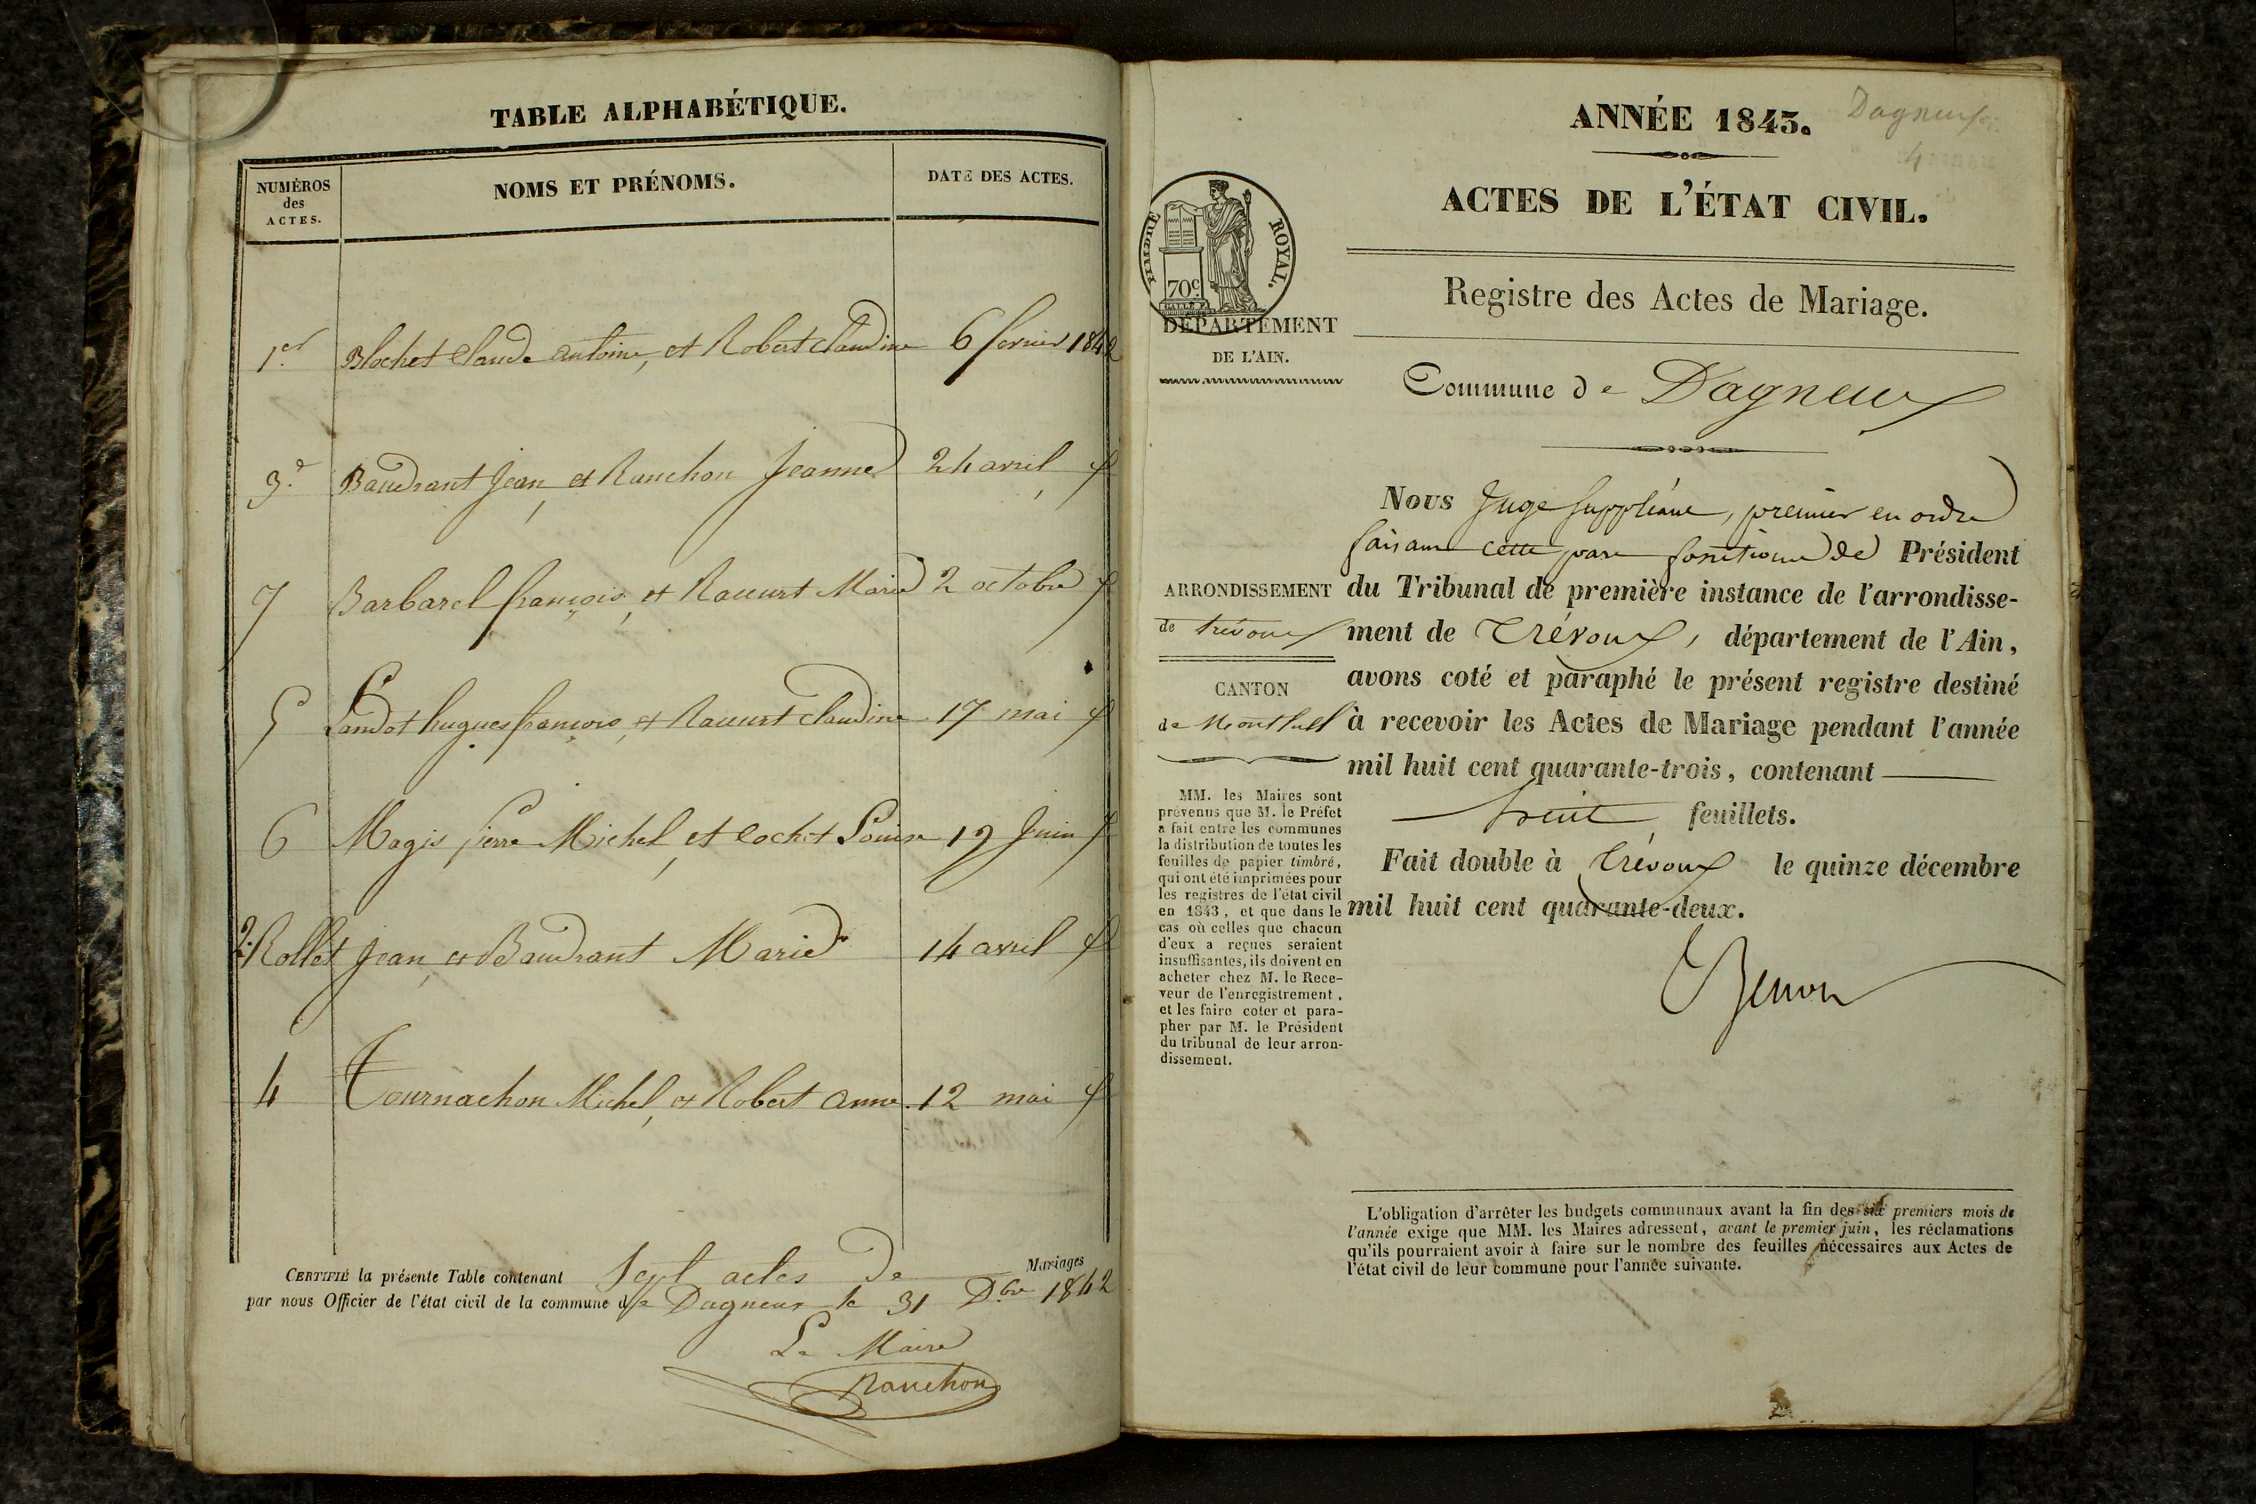 TABLE ALPHABÉTIQUE.
NUMÉROS
des
ACTES.
NOMS ET PRÉNOMS.
DATE DES ACTES.
1er Blochet Claude antoine, et Robert Claudine 6 fevrier 1842
3e Baudrant Jean, et Ranchon Jeanne 24 avril
7 Barbarel françois, et Racurt Marie 2 octobre
5 Landot hugues françois, et Racurt Claudine 17 mai
6 Magis pierre Michel, et Cochet Louise 19 Juin
2. Rollet Jean, et Baudrant Marie 14 avril
4 Tournachon Michel, et Robert anne 12 mai
CERTIFIÉ la présente Table contenant Sept actes de Mariages
par nous Officier de l'état civil de la commune de Dagneux le 31 Dbre 1842
Le Maire
Ranchon
Dagneux
4
ANNÉE 1843.
ACTES DE L'ÉTAT CIVIL.
TIMBRE ROYAL.
70c
DÉPARTEMENT
DE L'AIN.
Registre des Actes de Mariage.
Commune de Dagneux
ARRONDISSEMENT
de trévoux
CANTON
de Montluel
MM. les Maires sont
prévenus que M. le Préfet
a fait entre les communes
la distribution de toutes les
feuilles de papier timbré,
qui ont été imprimées pour
les registres de l'état civil
en 1843, et que dans le
cas où celles que chacun
d'eux a reçues seraient
insuffisantes, ils doivent en
acheter chez M. le Rece-
veur de l'enregistrement,
et les faire coter et para-
pher par M. le Président
du tribunal de leur arron-
dissement.
Nous Juge suppléant, premier en ordre
faisant cette part fonctions de Président
du Tribunal de première instance de l'arrondisse-
ment de Trévoux, département de l'Ain,
avons coté et paraphé le présent registre destiné
à recevoir les Actes de Mariage pendant l'année
mil huit cent quarante-trois, contenant
huit feuillets.
Fait double à Trévoux le quinze décembre
mil huit cent quarante-deux.
L'obligation d'arrêter les budgets communaux avant la fin des six premiers mois de
l'année exige que MM. les Maires adressent, avant le premier juin, les réclamations
qu'ils pourraient avoir à faire sur le nombre des feuilles nécessaires aux Actes de
l'état civil de leur commune pour l'année suivante.